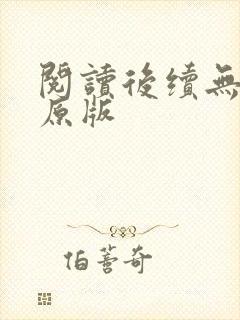 閱讀後續無
原版
伯蒼奇